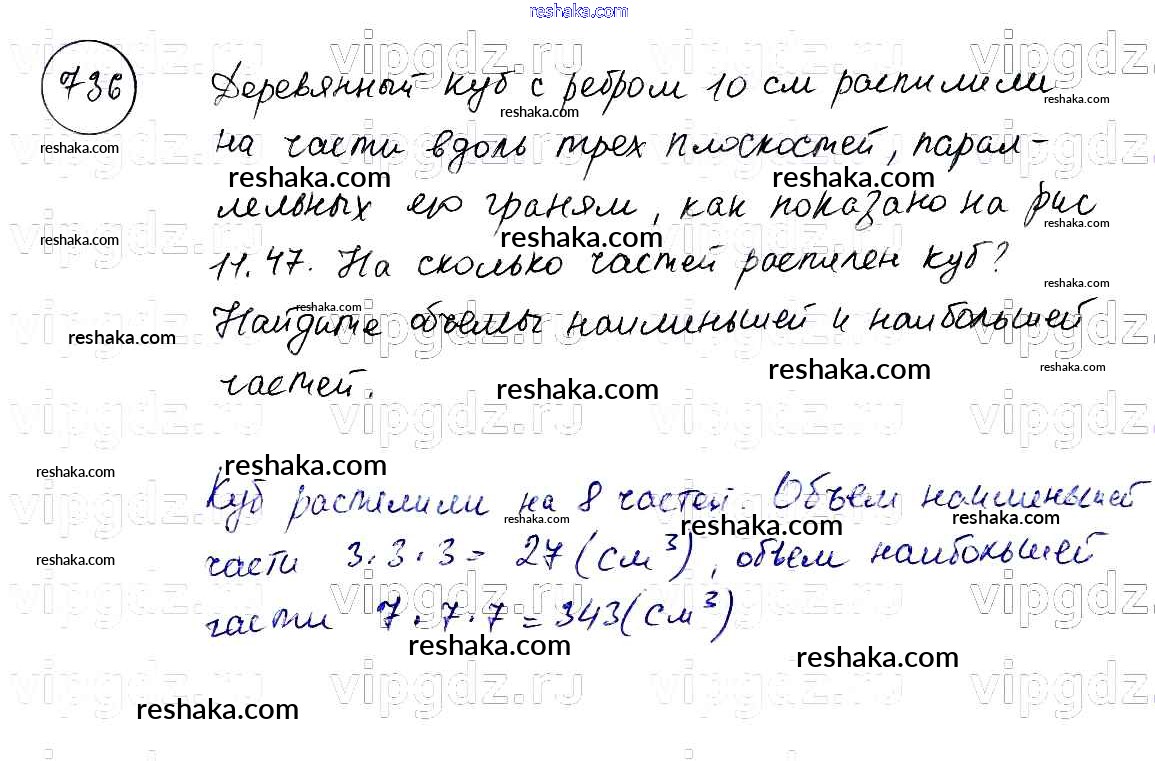 reshaka.com
736
Деревянный куб с ребром 10 см распилили
на части вдоль трех плоскостей, парал-
лельных его граням, как показано на рис
11.47. На сколько частей распилен куб?
Найдите объемы наименьшей и наибольшей
частей.
Куб распилили на 8 частей. Объем наименьшей
части 3·3·3= 27(см³), объем наибольшей
части 7·7·7=343(см³)
reshaka.com
vipgdz.ru